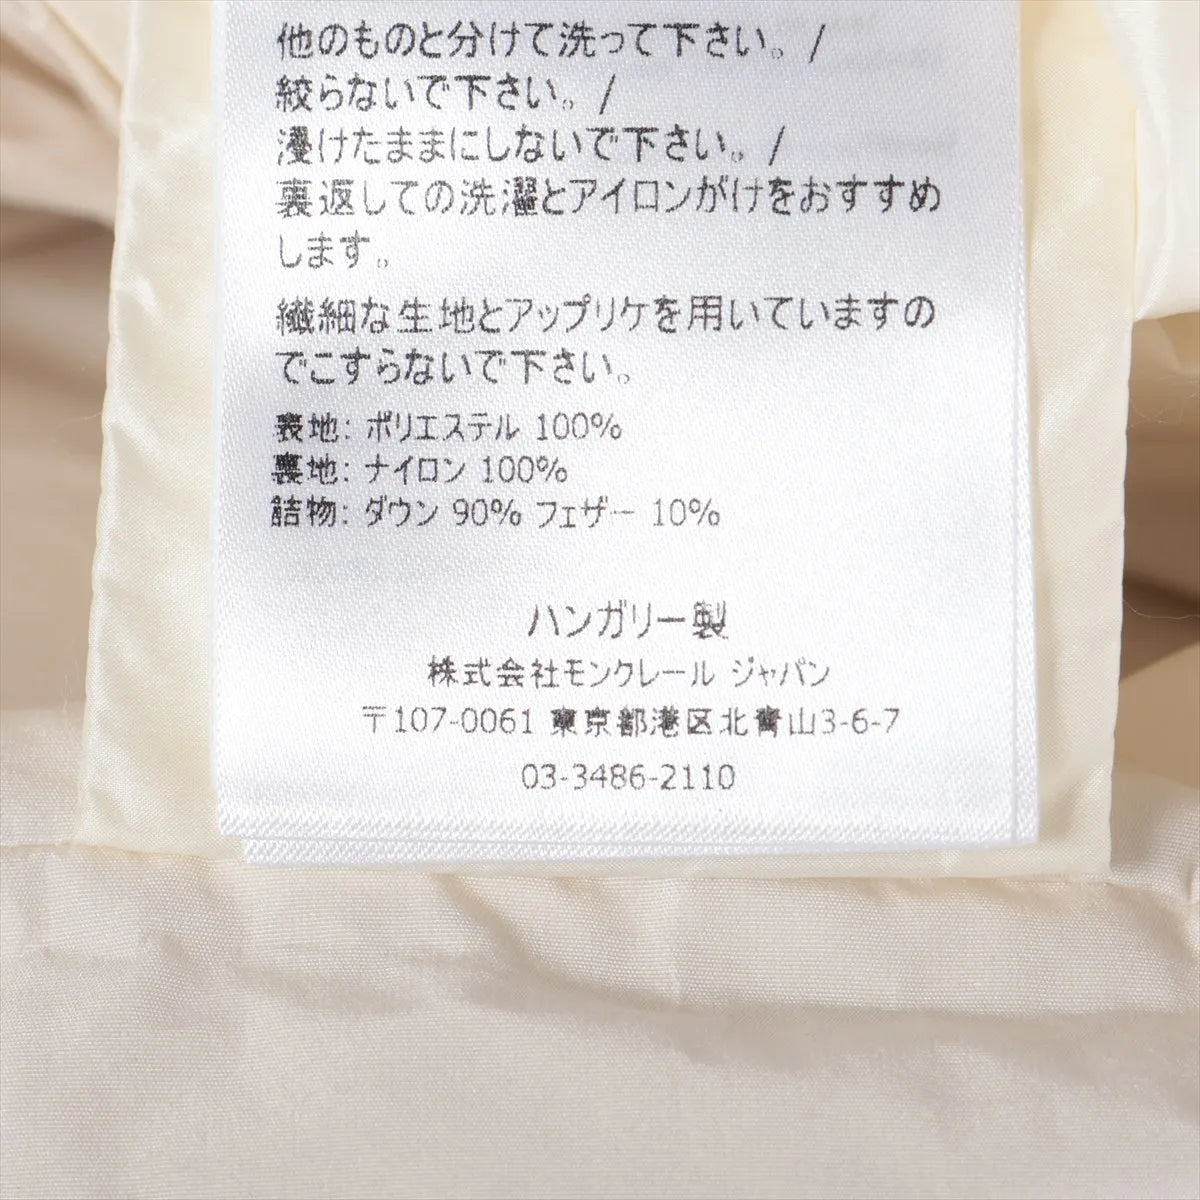 他のものと分けて洗って下さい。/
絞らないで下さい。/
浸けたままにしないで下さい。/
裏返しての洗濯とアイロンがけをおすすめ
します。
繊細な生地とアップリケを用いていますの
でこすらないで下さい。
表地: ポリエステル 100%
裏地: ナイロン 100%
詰物: ダウン 90% フェザー 10%
ハンガリー製
株式会社モンクレール ジャパン
〒107-0061 東京都港区北青山3-6-7
03-3486-2110